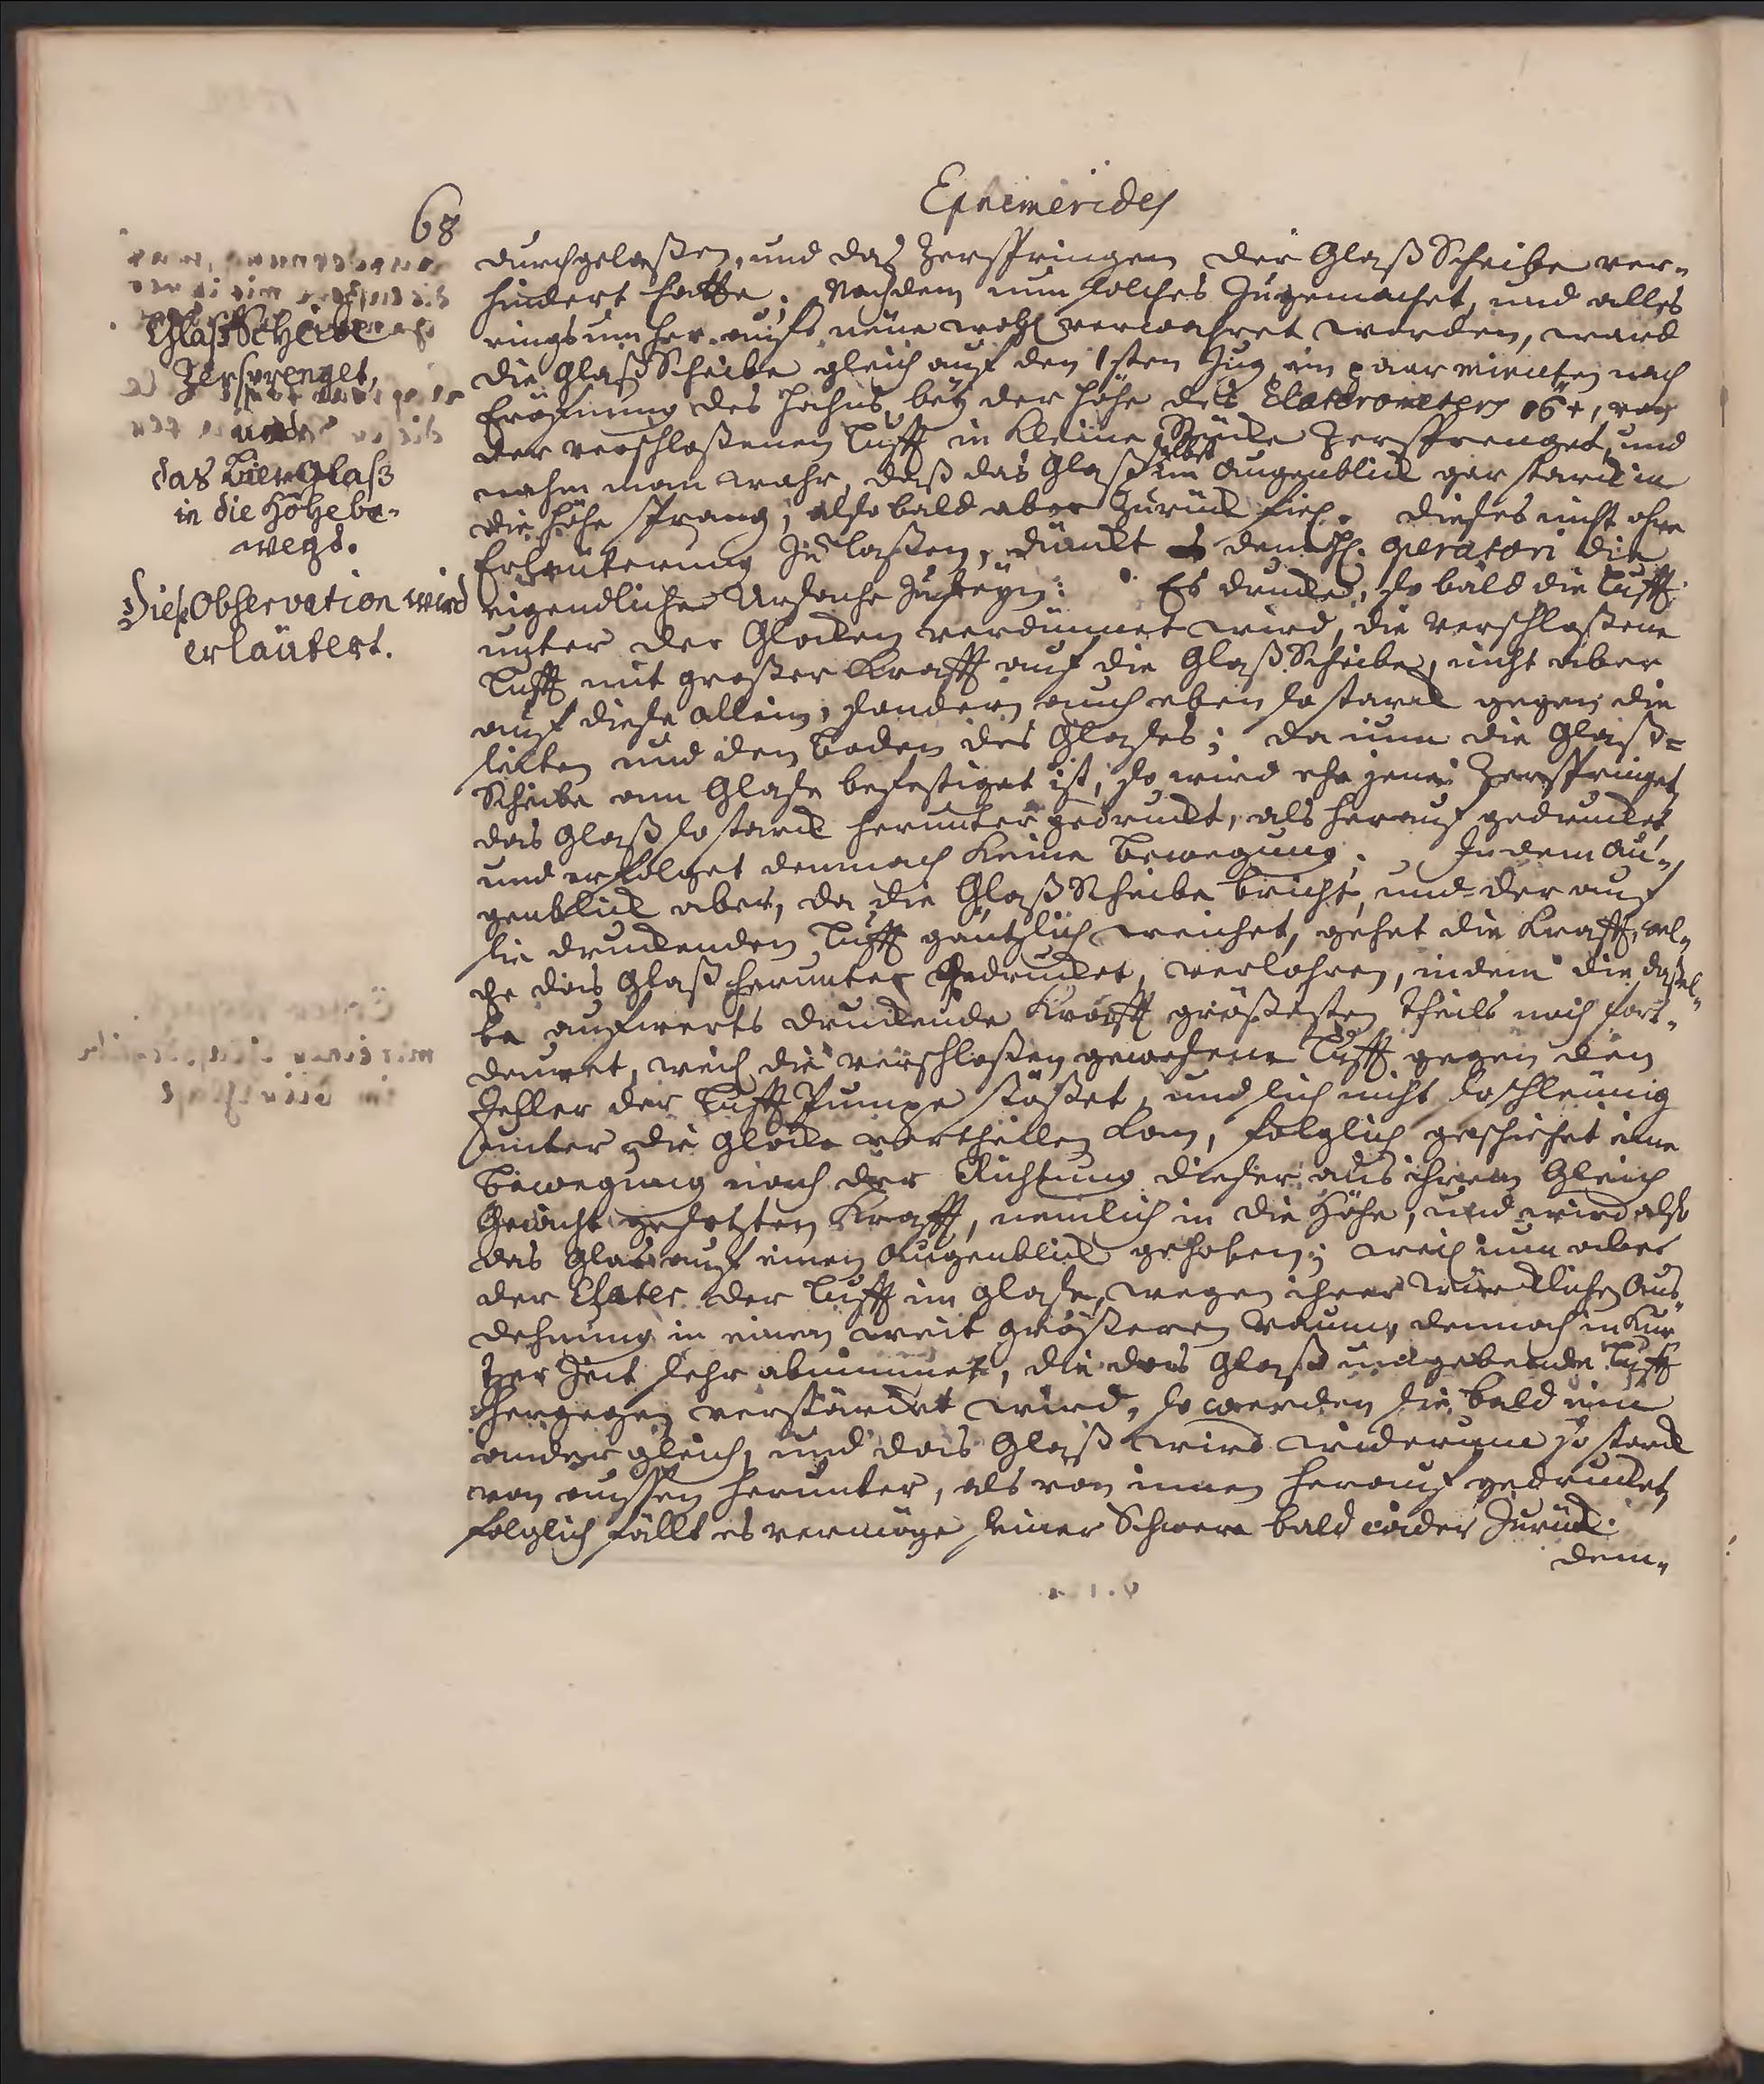 68
Ephemerides
Glaß Scheibe
Zersprenget,
und
das BierGlaß
in die Höhe be-
wegt.
Dieß Observation wird
erläutert.
durchgelaßen, und das Zerspringen der Glaß Scheibe ver-
hindert hatte. Nachdem nun solches Zugemachet, und alles
rings um her aufs neüe wohl verwahret worden, ward
die Glaß Scheibe gleich auf den 1sten Zug, ein paar minuten nach
Eröfnung des Hahns, beÿ der Höhe des Elaterometers von
der verschloßenen Lufft in kleine Stücke Zersprenget, und
nahm man wahr, daß das Glaß selbst im Augenblick gar starck in
die Höhe sprang, alsobald aber Zurück fiel. Dieses nicht ohne
Erläuterung Zu laßen, dünckt dem H. Operatori die
eigendliche Ursache Zu seÿn: Es drucket, so bald die Lufft
unter der Glocken verdünnet wird, die verschloßene
Lufft mit großer Krafft auf die Glaß Scheibe, nicht aber
auf diese allein, sondern auch eben so starck gegen die
seiten und den Boden des Glases; da nun die Glaß-
Scheibe am Glase befestiget ist, so wird ehe jene Zerspringet,
das Glaß so starck herunter gedruckt, als herauf gedrucket,
und erfolget demnach keine Bewegung. In dem Au-
genblick aber, da die Glaß Scheibe bricht, und der auf
sie druckenden Lufft gäntzlich weichet, gehet die Krafft, wel-
che das Glaß herunter gedrucket, verlohren, indem die daßel-
be aufwerts druckende Krafft größesten Theils noch fort-
dauret, weil die verschloßen gewesene Lufft gegen den
Teller der Lufft Pumpe stößet, und sich nicht so schleünig
unter die Glocke vertheilen kan, folglich geschiehet eine
Bewegung nach der Richtung dieser aus ihrem Gleich
Gewicht gesetzten Krafft, nemlich in die Höhe, und wird also
das Glas auf einen Augenblick gehoben; weil nun aber
der Elater der Lufft im Glase, wegen ihrer würcklichen Aus-
dehnung in einen weit größeren Raum, dennoch in kur-
tzer Zeit sehr abnimmet, die das Glaß umgebende Lufft
hergegen verstärcket wird, so werden sie bald ein
ander gleich, und das Glaß wird wiederum so starck
von aussen herunter, als von innen herauf gedrucket,
folglich fällt es vermöge seiner Schwere bald wider Zurück.
dem-